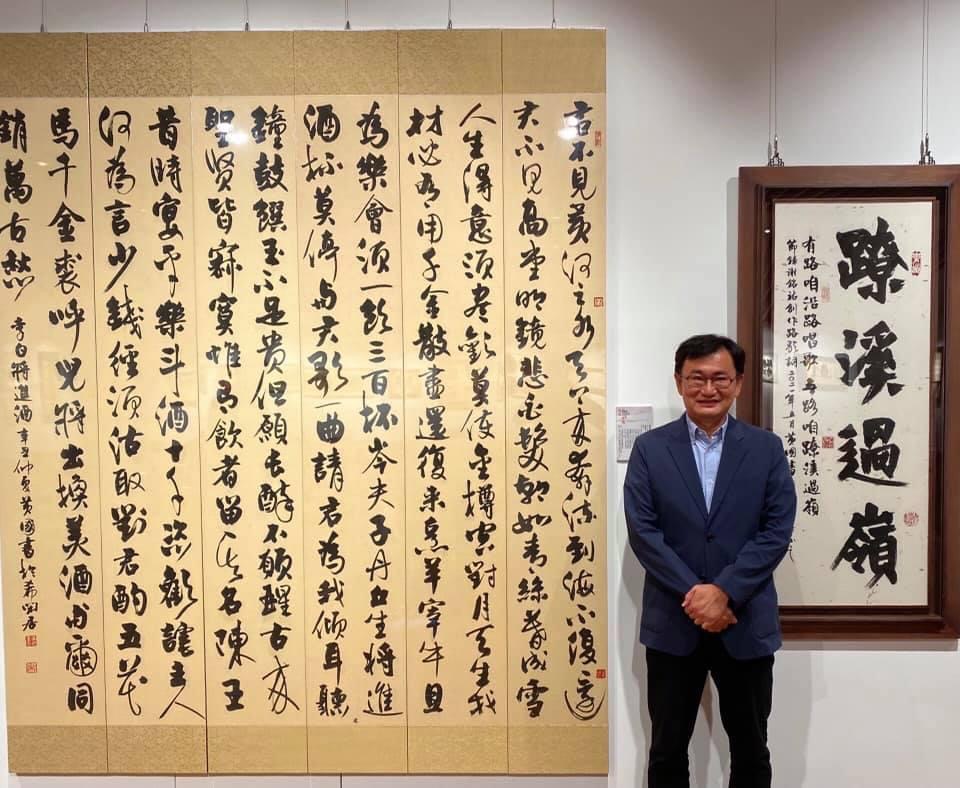 君不見黃河之水天上來奔流到海不復還
君不見高堂明鏡悲白髮朝如青絲暮成雪
人生得意須盡歡莫使金樽空對月天生我
材必有用千金散盡還復來烹羊宰牛且
為樂會須一飲三百杯岑夫子丹丘生將進
酒杯莫停與君歌一曲請君為我傾耳聽
鐘鼓饌玉不足貴但願長醉不願醒古來
聖賢皆寂寞惟有飲者留其名陳王
昔時宴平樂斗酒十千恣歡謔主人
何為言少錢徑須沽取對君酌五花
馬千金裘呼兒將出換美酒與爾同
銷萬古愁 李白將進酒 辛丑仲夏黃國書於希
蹽溪過嶺
有路咱沿路唱歌無路咱蹽溪過嶺
節錄謝銘祐創作路歌詞二〇二一年五月黃國書